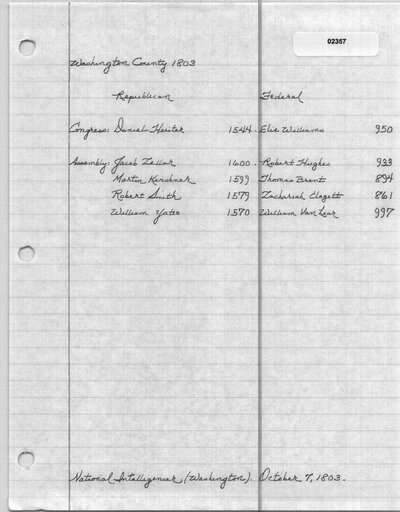 02357
Washington County 1803
Republican Federal
Congress: Daniel Heister 1544 Elie Williams 950
Assembly: Jacob Zellar 1600 Robert Hughes 933
Martin Kershner 1599 Thomas Brent 894
Robert Smith 1579 Zachariah Clagett 861
William Yates 1570 William Van Lear 997
National Intelligencer (Washington). October 7, 1803.